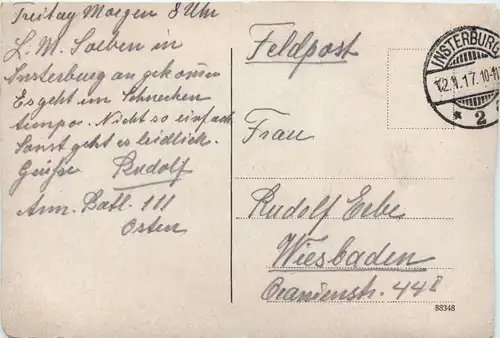 Freitag Morgen 8 Uhr
L. M. Soeben in
Insterburg angekommen
Es geht im Schnecken
tempo. Nicht so einfach
Sonst geht es leidlich.
Grüße Rudolf
Mun. Batl. 111
Osten
Feldpost
Frau
Rudolf
Wiesbaden
Oranienstr. 44 I
INSTERBURG
12.1.17. 10-11
* 2
88348